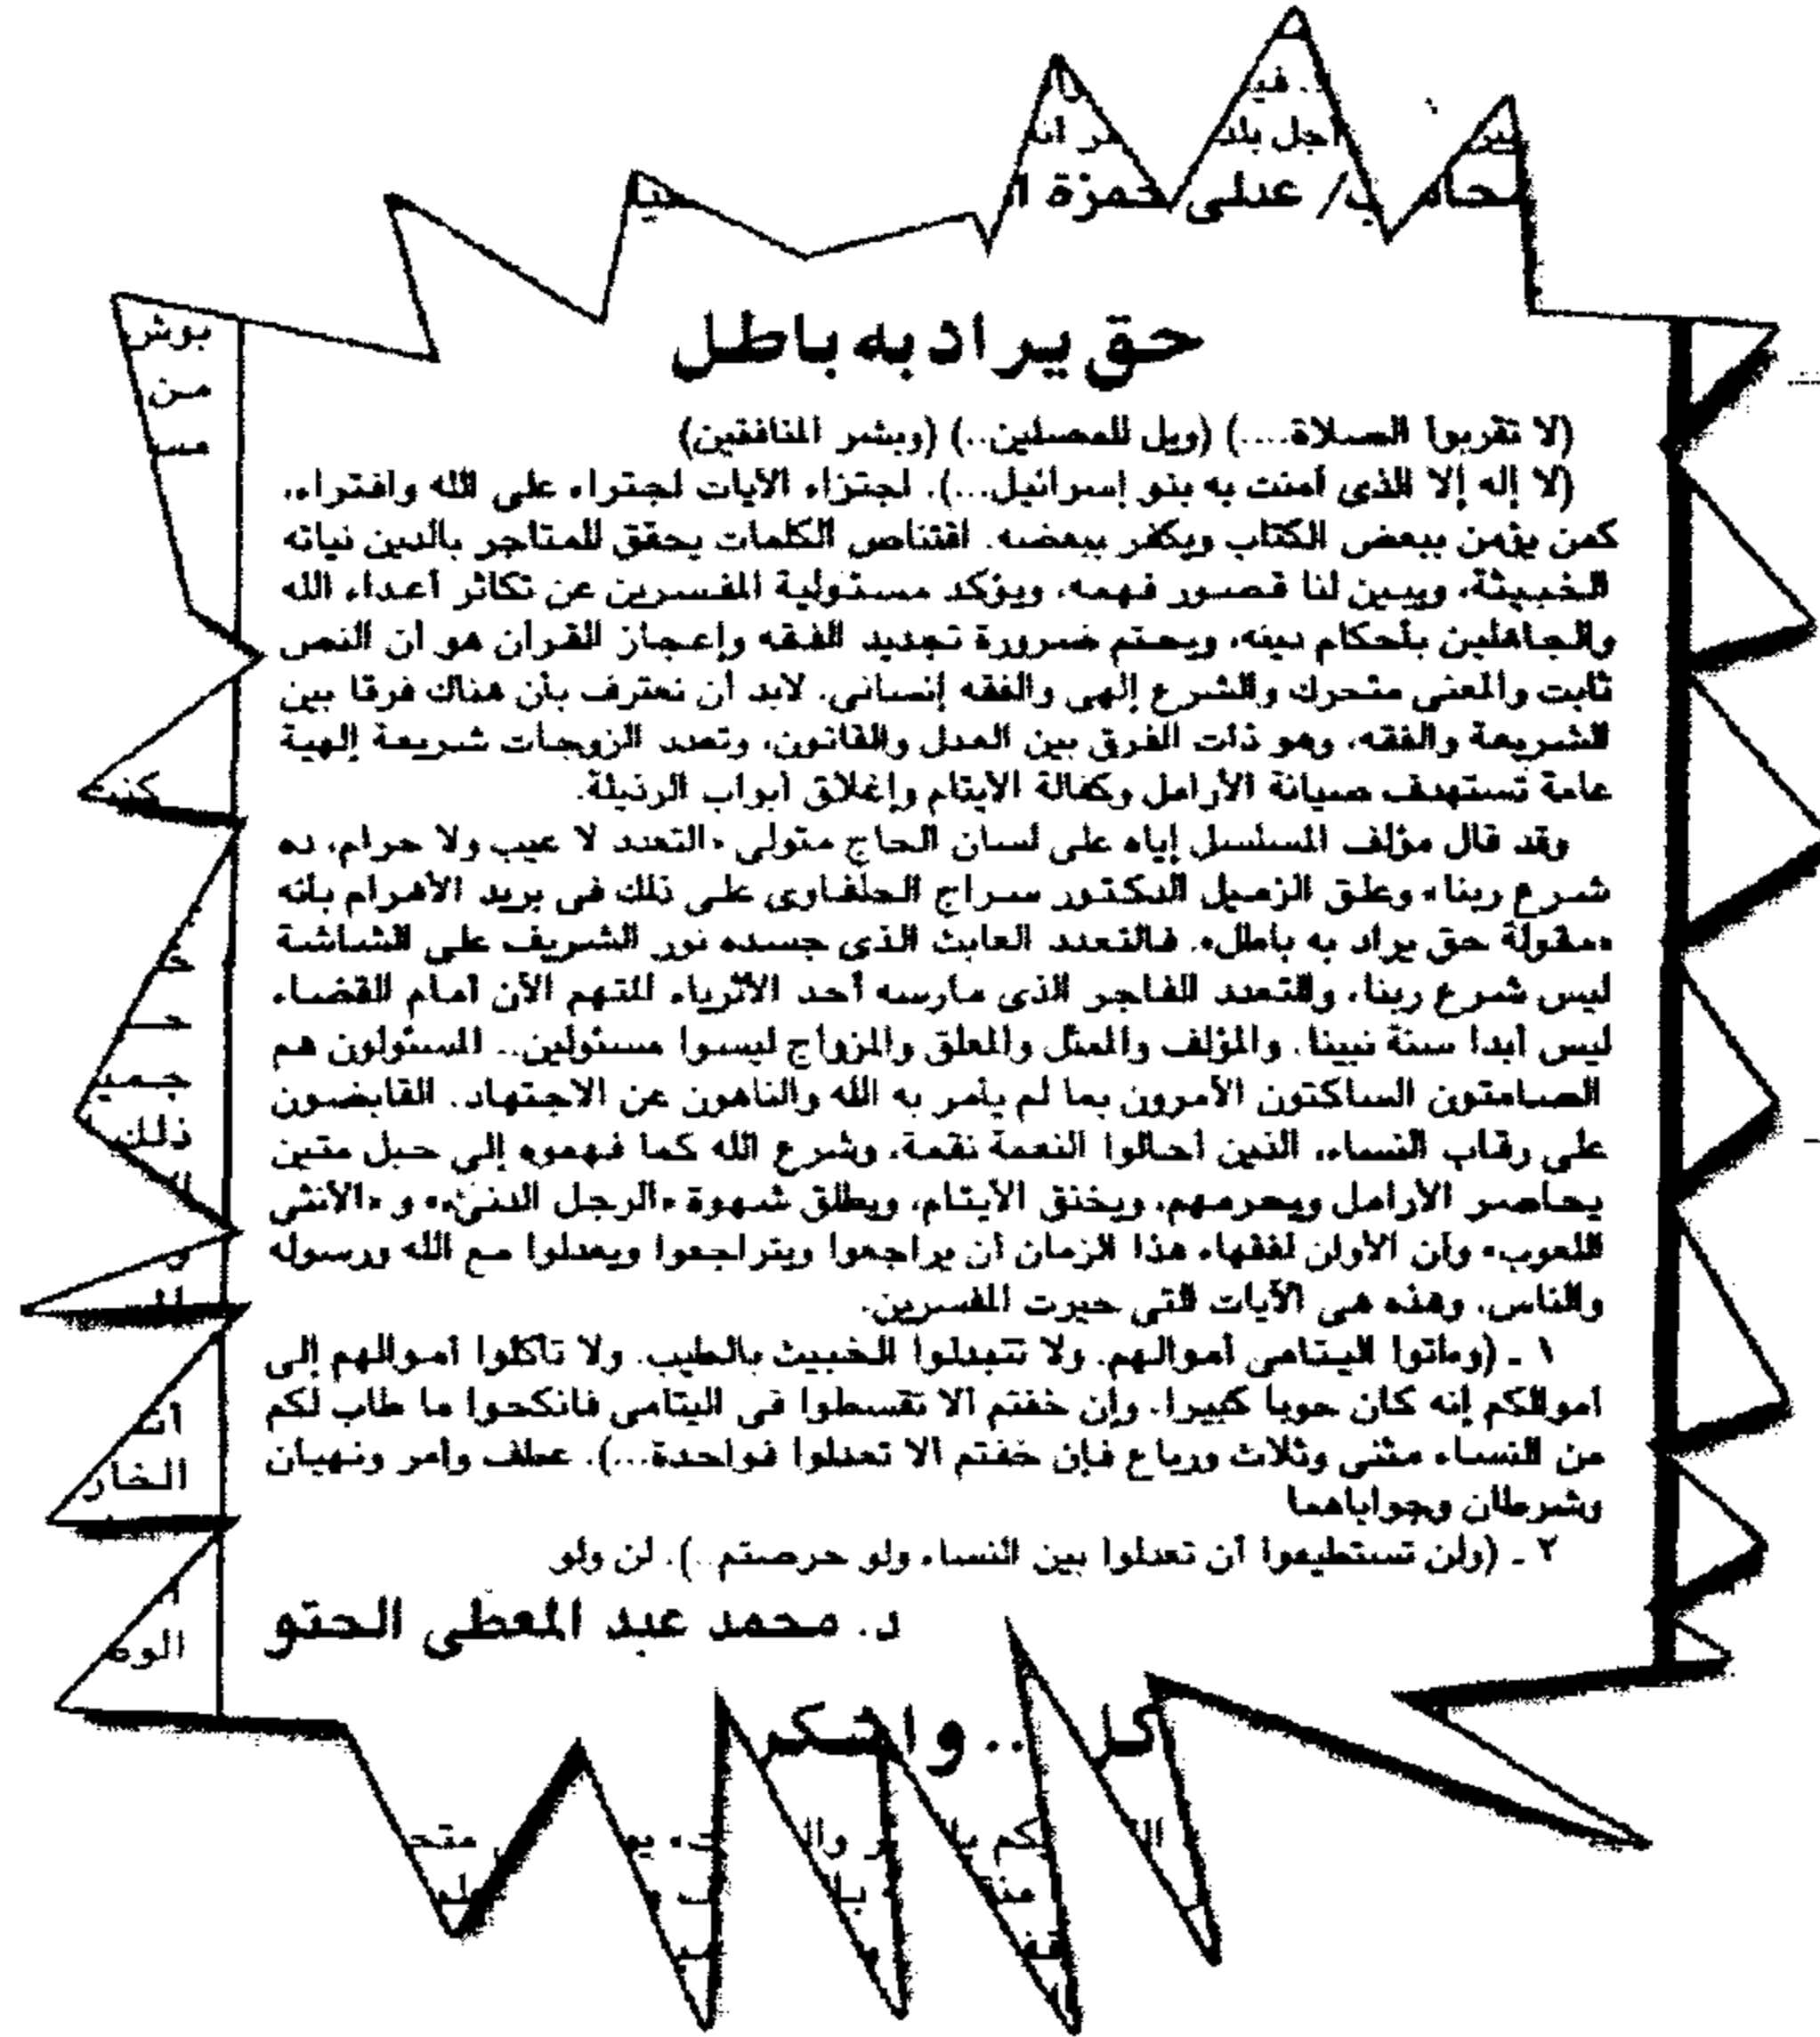 فيـ
أجل بلد
ـر انـ
ـحامـ ب/ عدلى حمزة ا
حق يراد به باطل
(لا تقربوا الصلاة....) (ويل للمصلين..) (وبشر المنافقين)
(لا إله إلا الذى آمنت به بنو إسرائيل...). اجتزاء الآيات اجتراء على الله وافتراء،
كمن يؤمن ببعض الكتاب ويكفر ببعضه. اقتناص الكلمات يحقق للمتاجر بالدين نياته
الخبيثة، ويبين لنا قصور فهمه، ويؤكد مسئولية المفسرين عن تكاثر أعداء الله
والجاهلين بأحكام دينه، ويحتم ضرورة تجديد الفقه وإعجاز القرآن هو أن النص
ثابت والمعنى متحرك والشرع إلهى والفقه إنسانى. لابد أن نعترف بأن هناك فرقا بين
الشريعة والفقه، وهو ذات الفرق بين العدل والقانون، وتعدد الزوجات شريعة إلهية
عامة تستهدف صيانة الأرامل وكفالة الأيتام وإغلاق أبواب الرذيلة.
وقد قال مؤلف المسلسل إياه على لسان الحاج متولى «التعدد لا عيب ولا حرام، ده
شرع ربنا» وعلق الزميل الدكتور سراج الحلفاوى على ذلك فى بريد الأهرام بأنه
«مقولة حق يراد به باطل». فالتعدد العابث الذى جسده نور الشريف على الشاشة
ليس شرع ربنا، والتعدد الفاجر الذى مارسه أحد الأثرياء المتهم الآن أمام القضاء
ليس أبدا سنة نبينا. والمؤلف والممثل والمعلق والمزواج ليسوا مسئولين.. المسئولون هم
الصامتون الساكتون الآمرون بما لم يأمر به الله والناهون عن الاجتهاد. القابضون
على رقاب النساء، الذين أحالوا النعمة نقمة، وشرع الله كما فهموه إلى حبل متين
يحاصر الأرامل ويحرمهم، ويخنق الأيتام، ويطلق شهوة «الرجل الدنىء» و «الأنثى
اللعوب» وآن الأوان لفقهاء هذا الزمان أن يراجعوا ويتراجعوا ويعدلوا مع الله ورسوله
والناس. وهذه هى الآيات التى حيرت المفسرين.
١ ـ (وءاتوا اليتامى أموالهم. ولا تتبدلوا الخبيث بالطيب. ولا تأكلوا أموالهم إلى
أموالكم إنه كان حوبا كبيرا. وإن خفتم ألا تقسطوا فى اليتامى فانكحوا ما طاب لكم
من النساء مثنى وثلاث ورباع فإن خفتم ألا تعدلوا فواحدة...). عطف وأمر ونهيان
وشرطان وجواباهما
٢ ـ (ولن تستطيعوا أن تعدلوا بين النساء ولو حرصتم..). لن ولو
د. محمد عبد المعطى الحتو
كل .. واشكر
بوش
من
مسـ
كنت
جميـ
ذلك
الخار
الوـ